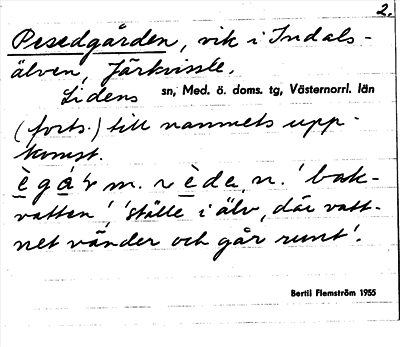 2.
Pesedgården, vik i Indals-
älven, Järkvissle.
Lidens sn, Med. ö. doms. tg, Västernorrl. län
(forts.) till namnets upp-
komst.
m. n. 'bak-
vatten', 'ställe i älv, där vatt-
net vänder och går runt'.
Bertil Flemström 1955